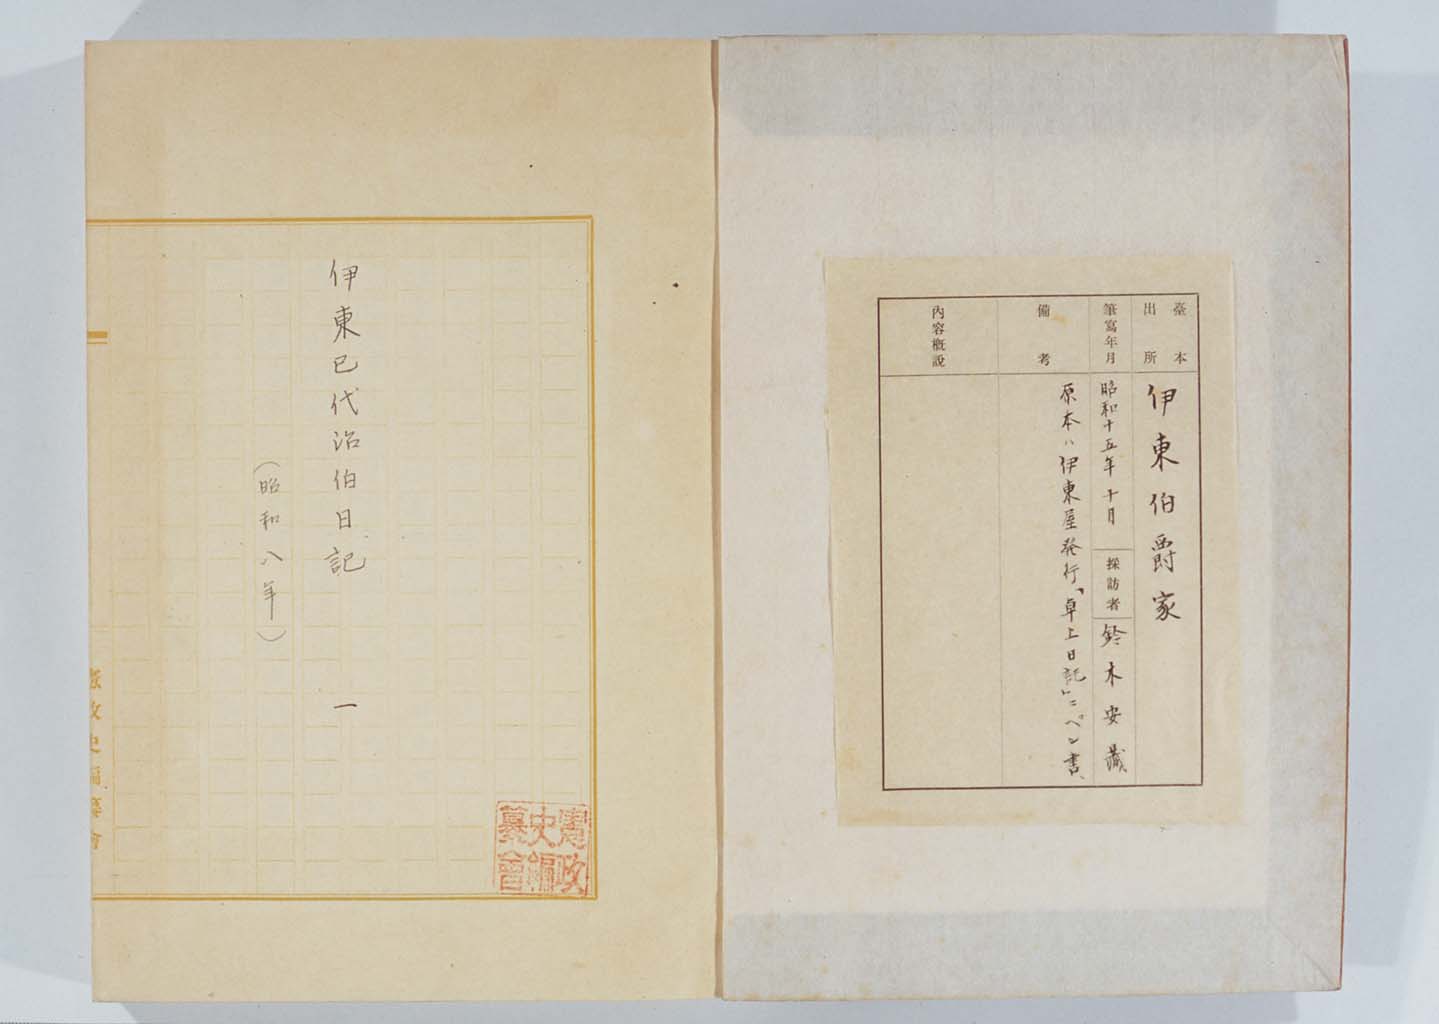 臺本
出所
伊東伯爵家
筆寫年月
昭和十五年十月
採訪者
鈴木安藏
備考
原本ハ伊東屋発行「卓上日記」ニペン書、
內容概說
伊東巳代治伯日記 一
(昭和八年)
憲政史編纂會
憲政
史編
纂會